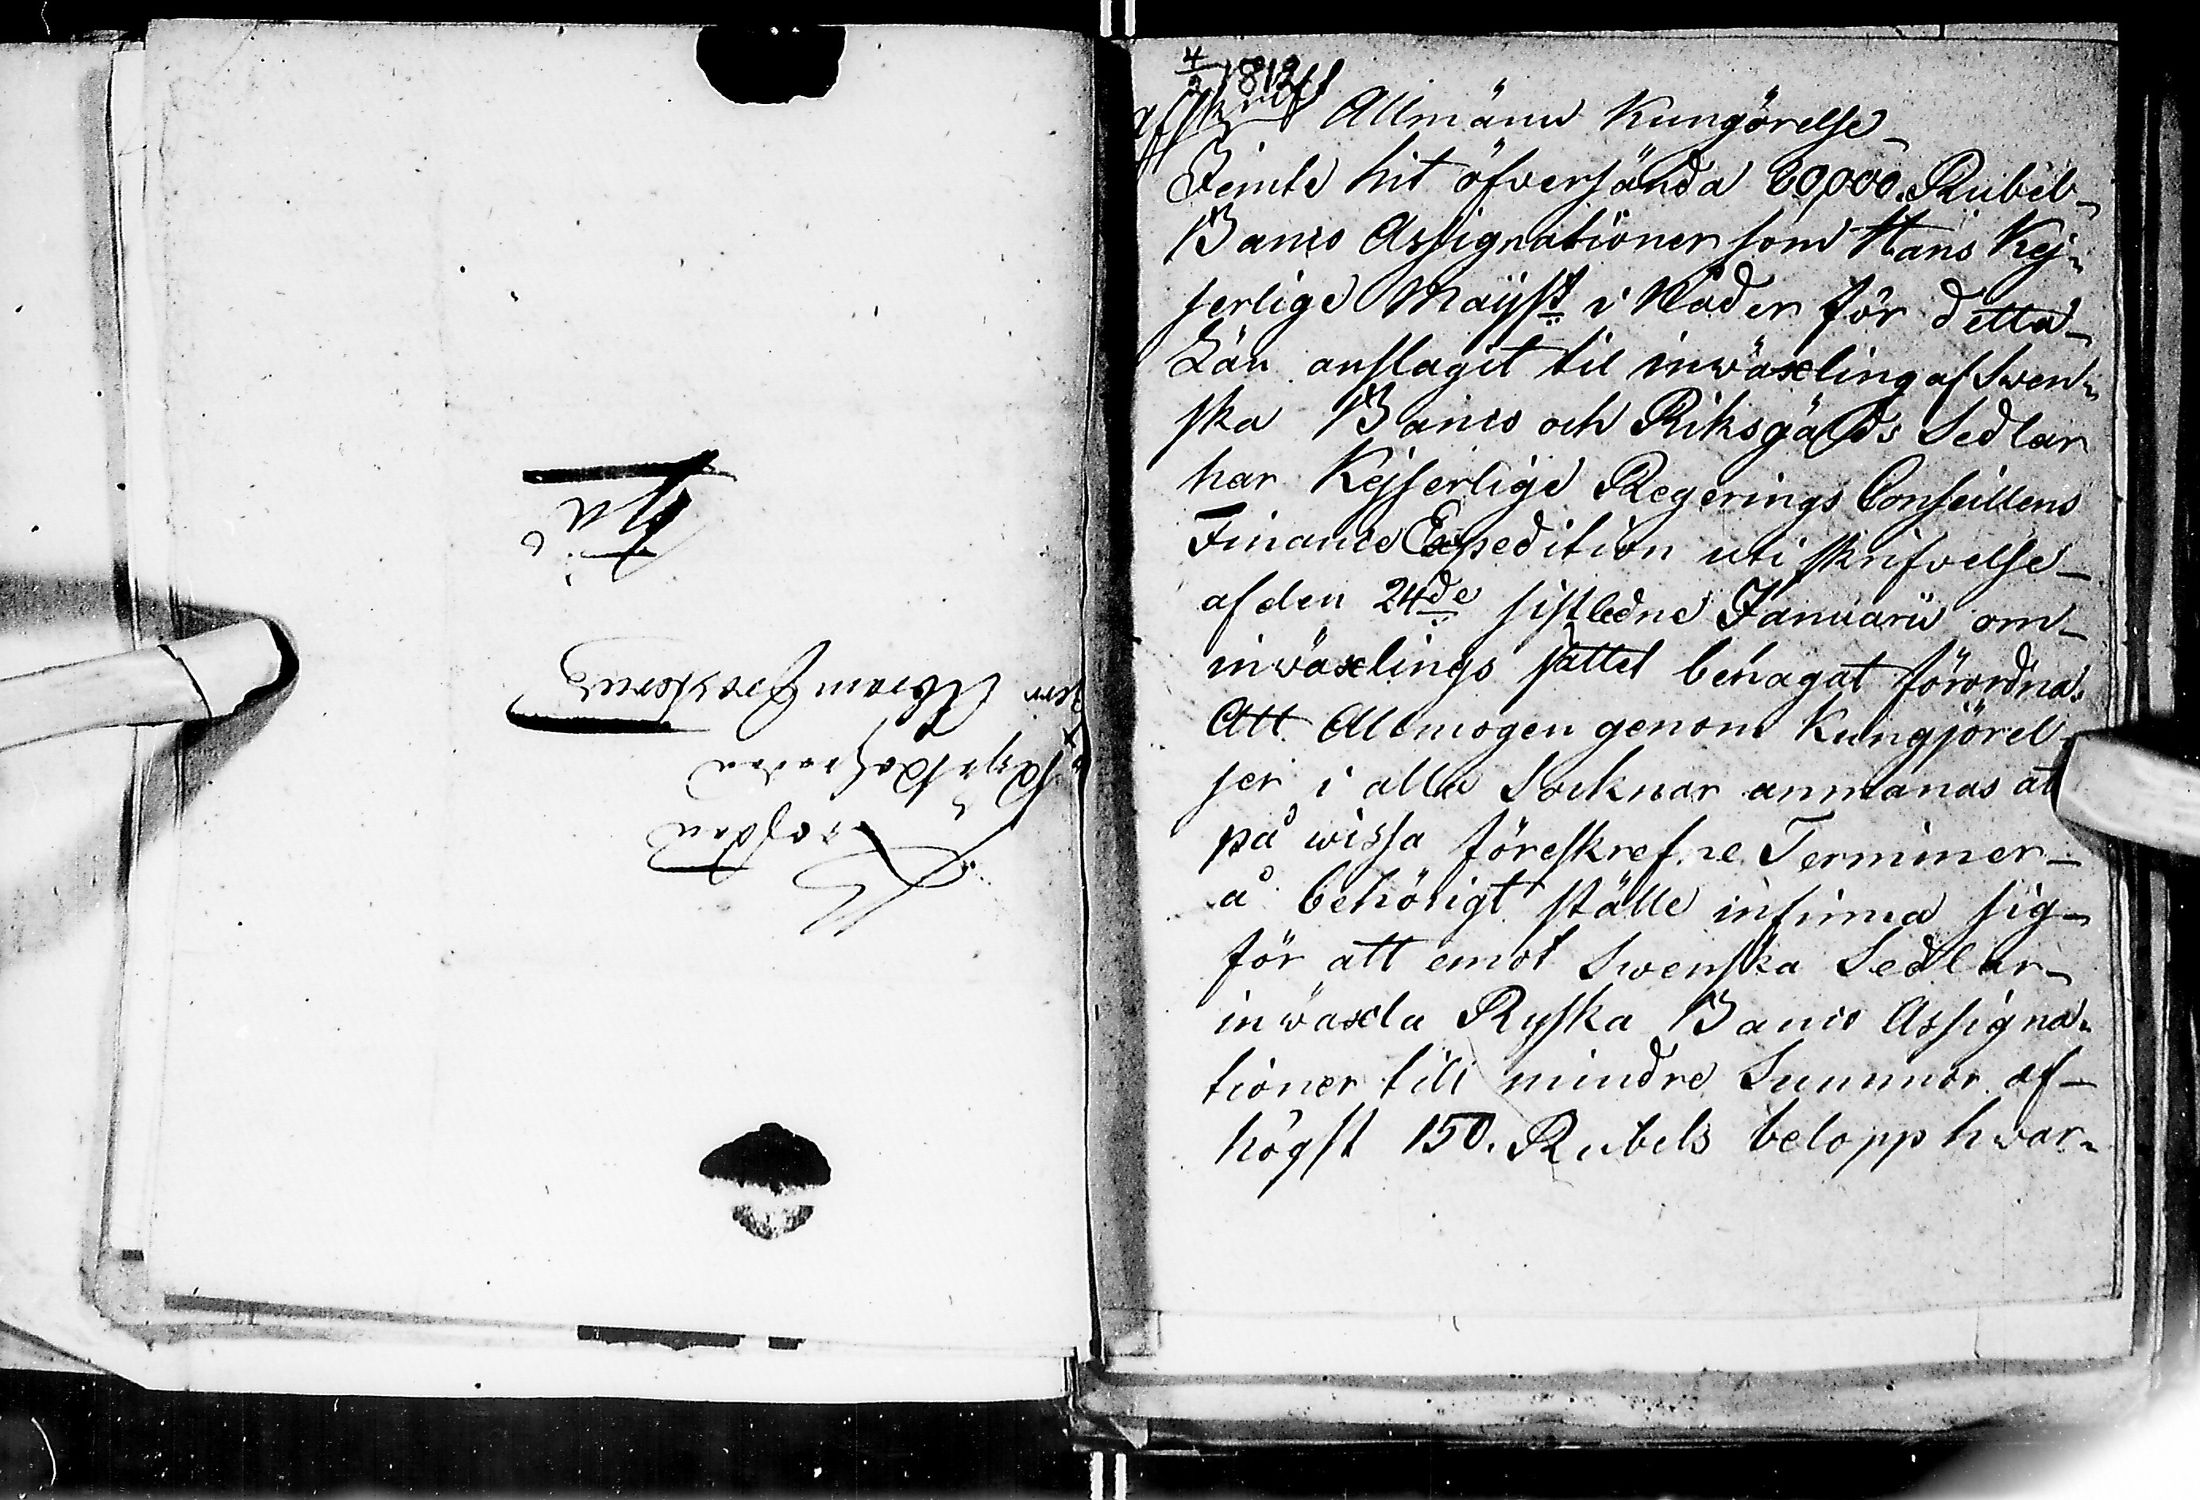 4/2 1812
Afskrift Allmänn Kungörelse
Jemte hit öfversända 60,000. Rubel
Banco Assignationer som Hans Kej-
serlige Maijst i Nåder för detta
Län anslagit til inwäxling af Swen-
ska Banco och Riksgälds Sedlar
har Kejserlige Regerings Conseillens
Finance Expedition uti skrifvelse
af den 24de sistledne Januarii om
inwäxlings sättet behagat förordna:
Att Allmogen genom Kungjörel-
ser i alla Socknar anmanas at
på wissa föreskrefne Terminer
å behörigt ställe infinna sig
för att emot Swenska Sedlar
inwäxla Ryska Banco Assigna-
tioner till mindre Summor af
högst 150. Rubels belopp hwar-